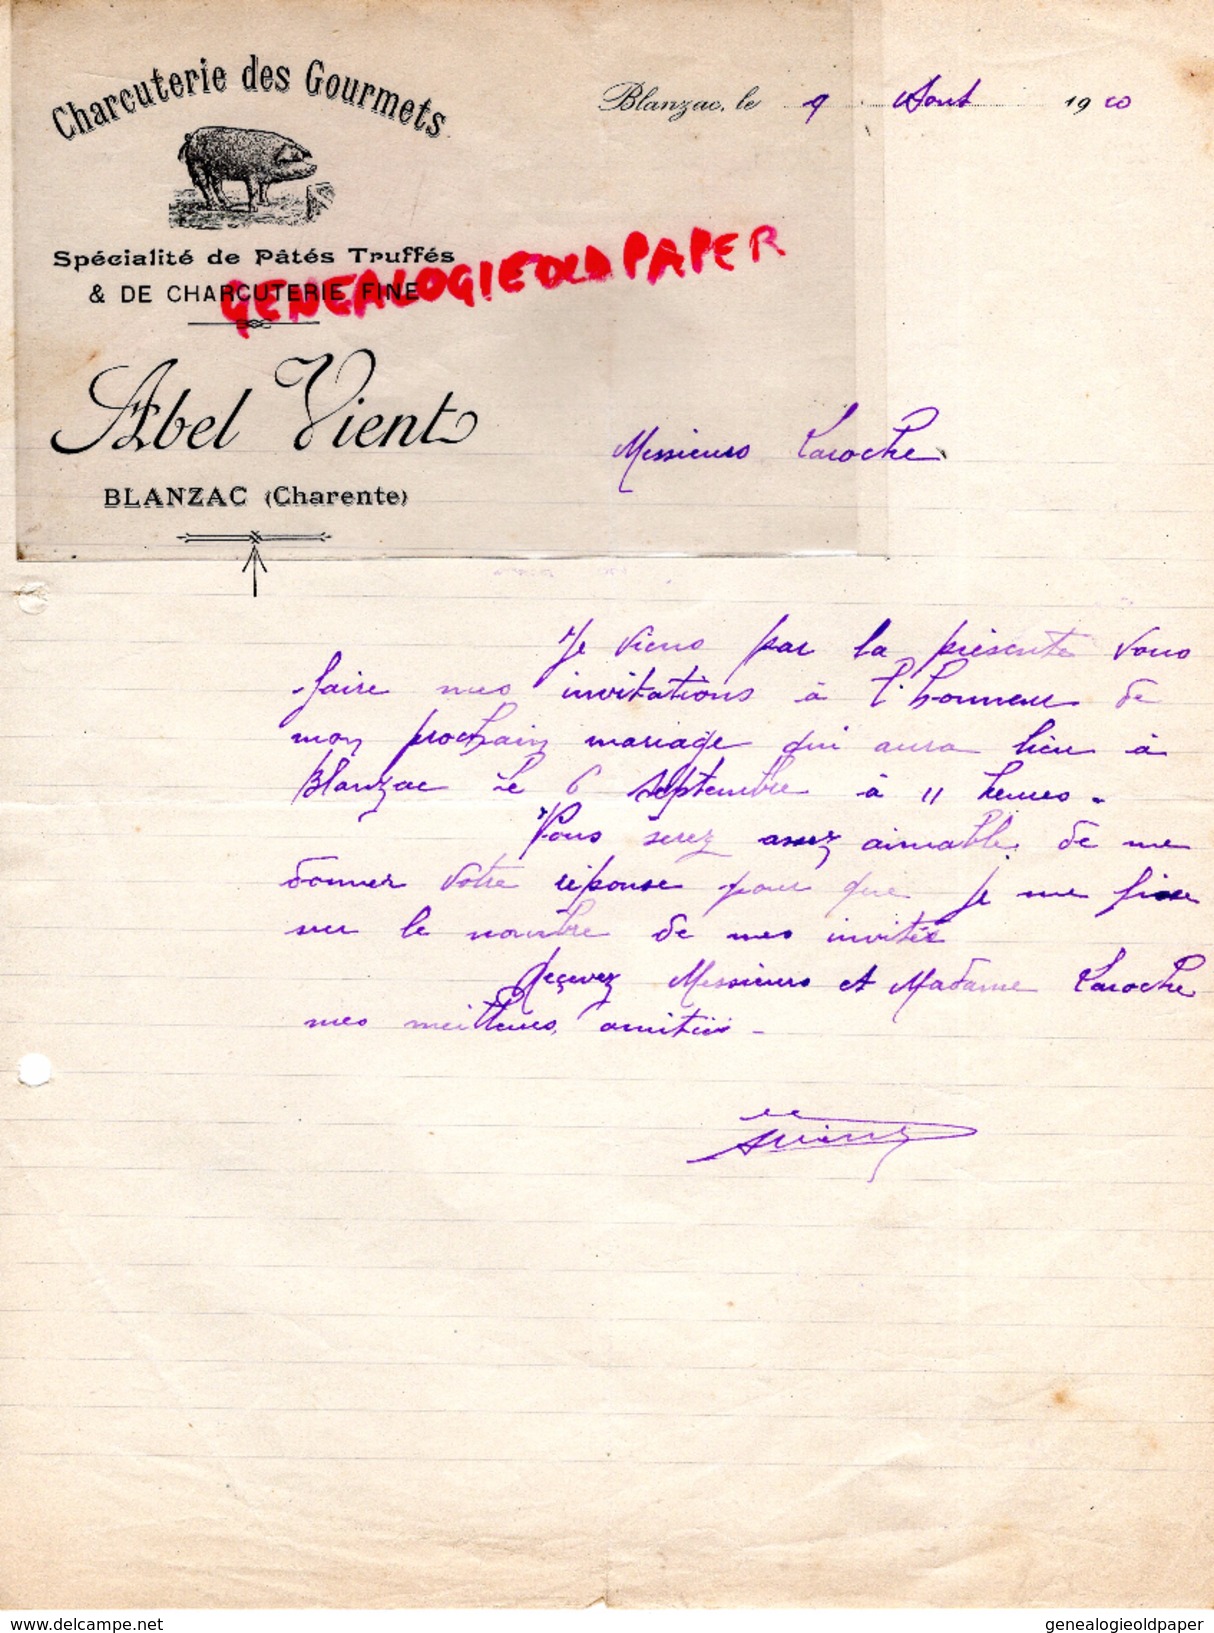 Charcuterie des Gourmets
Blanzac, le 9 Aout 19
Spécialité de Pâtés Truffés
GENEALOGIEOLDPAPER
& DE CHARCUTERIE FINE
Abel Vient
Messieurs Laroche
BLANZAC (Charente)
Je viens par la présente vous
faire mes invitations à l'honneur de
mon prochain mariage qui aura lieu à
Blanzac le 6 septembre à 11 heures.
Vous serez assez aimable de me
donner votre réponse pour que je me fixe
sur le nombre de mes invités
Reçevez Messieurs et Madame Laroche
mes meilleures amitiés -
delcampe.net
genealogieoldpaper